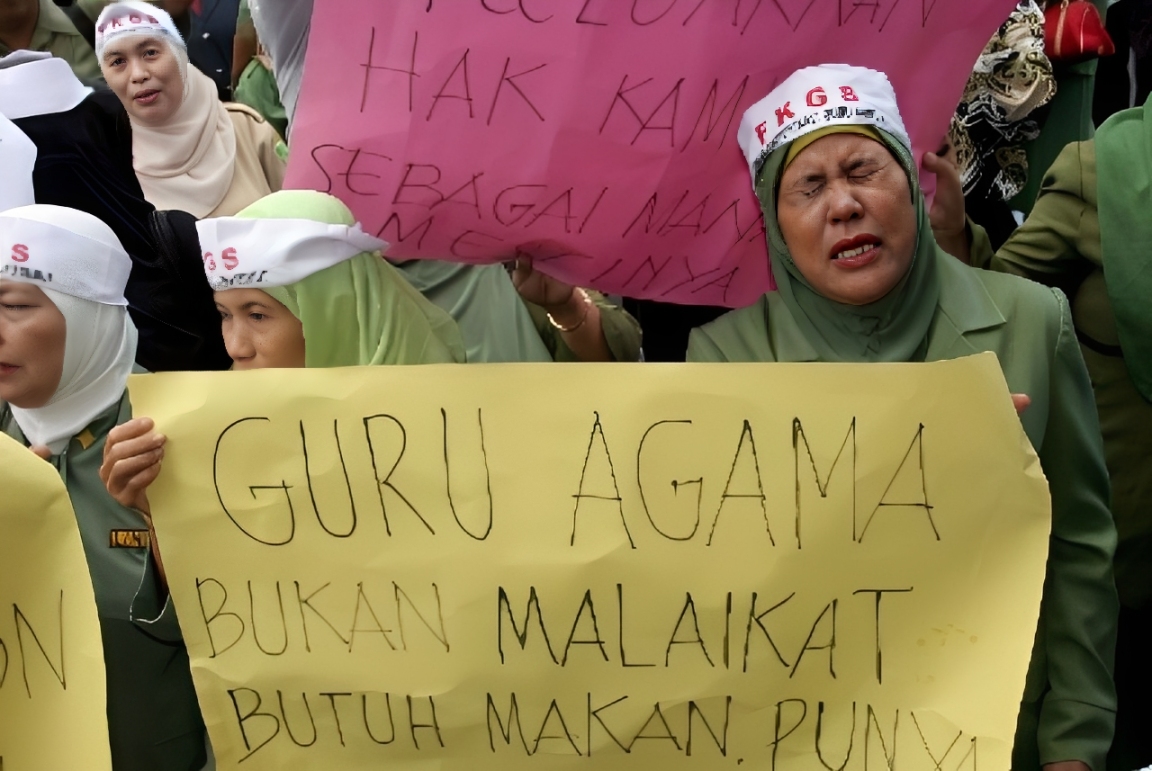 FKGB
HAK KAM
SEBAGAI MANA
INYA
FKGB
S
GS
GURU AGAMA
BUKAN MALAIKAT
BUTUH MAKAN. PUNYA
ON